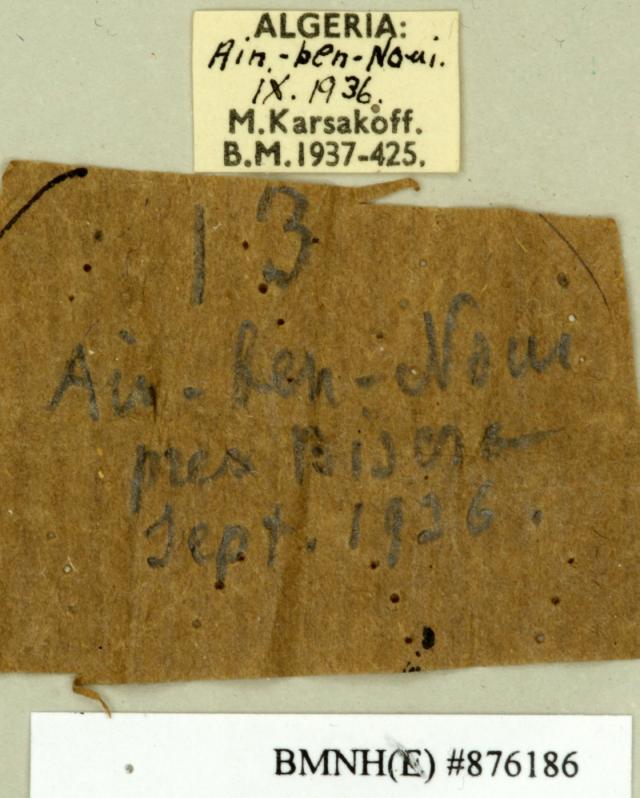 ALGERIA:
Ain.-ben-Noui.
IX. 1936.
M.Karsakoff.
B.M.1937-425.
13
Ain-ben-Noui
pres Biscra
Sept. 1936.
BMNH(E) #876186